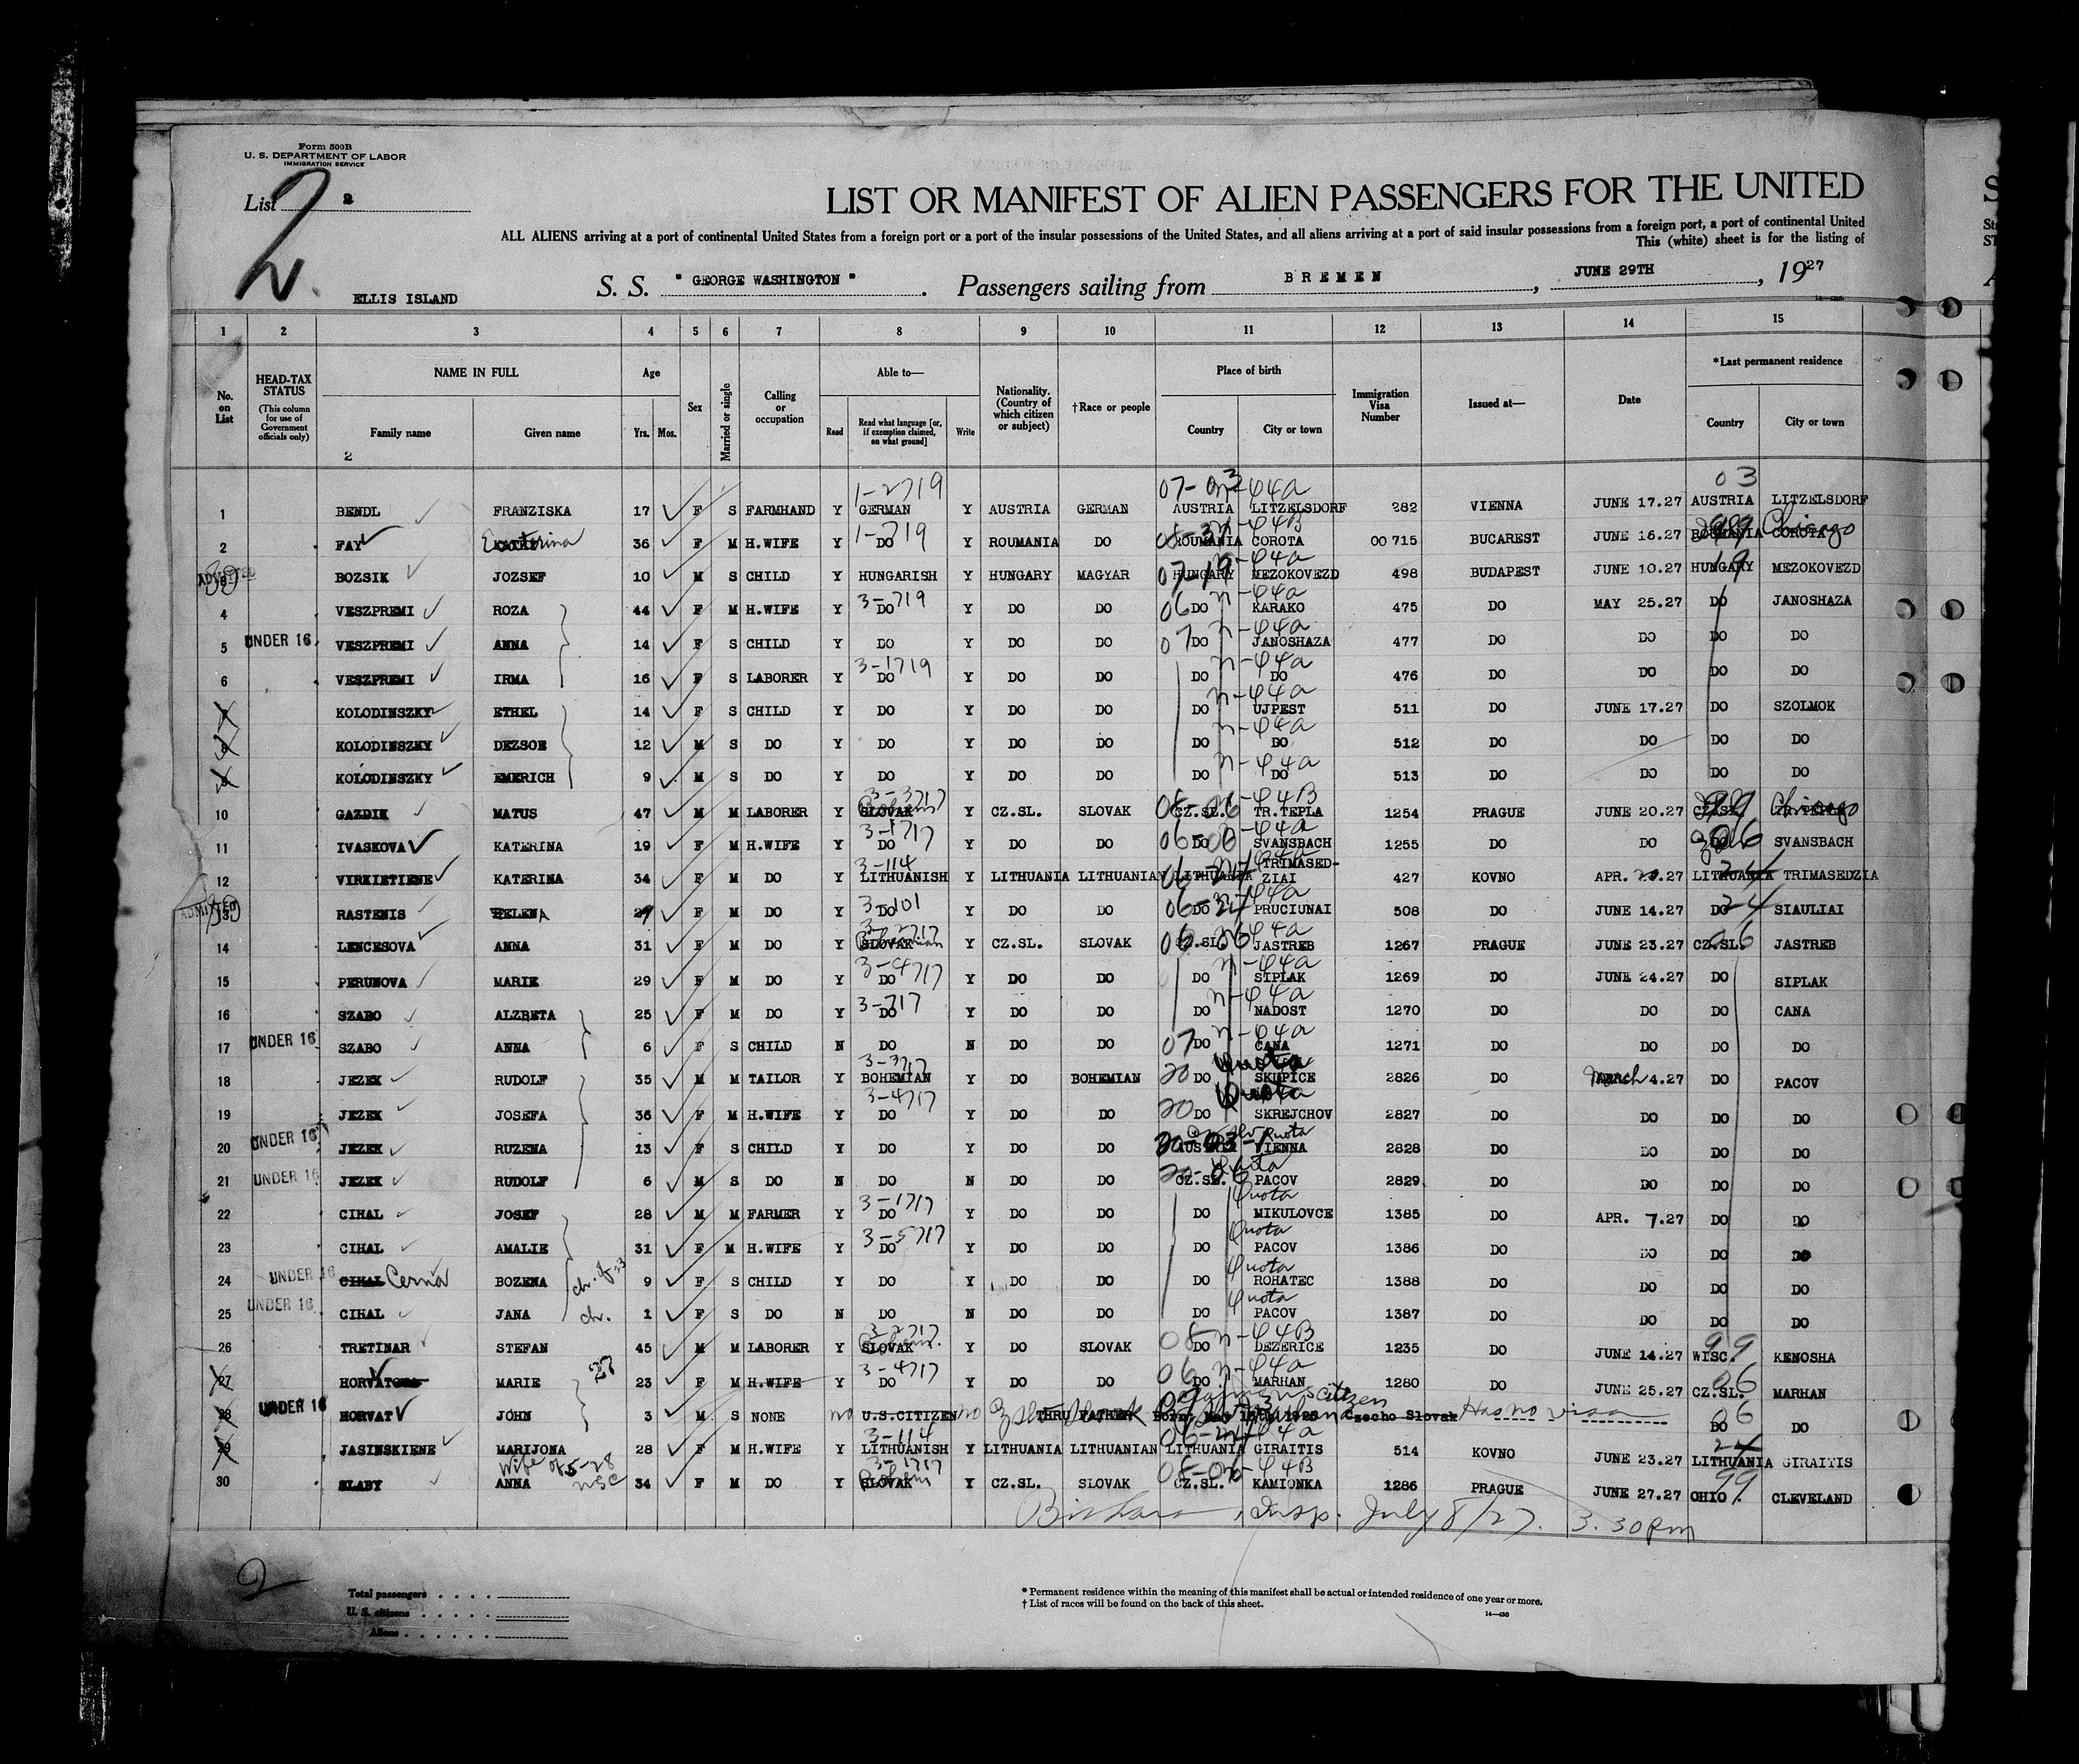 Form 500B
U. S. DEPARTMENT OF LABOR
IMMIGRATION SERVICE
List 2
2
LIST OR MANIFEST OF ALIEN PASSENGERS FOR THE UNITED
ALL ALIENS arriving at a port of continental United States from a foreign port or a port of the insular possessions of the United States, and all aliens arriving at a port of said insular possessions from a foreign port, a port of continental United
This (white) sheet is for the listing of
ELLIS ISLAND S. S. " GEORGE WASHINGTON " . Passengers sailing from BREMEN , JUNE 29TH , 1927
1 2 3 4 5 6 7 8 9 10 11 12 13 14 15
No. on List HEAD-TAX STATUS (This column for use of Government officials only) NAME IN FULL Family name Given name Age Yrs. Mos. Sex Married or single Calling or occupation Able to— Read Read what language [or, if exemption claimed, on what ground] Write Nationality. (Country of which citizen or subject) †Race or people Place of birth Country City or town Immigration Visa Number Issued at— Date *Last permanent residence Country City or town
2
1 BENDL FRANZISKA 17 F S FARMHAND Y GERMAN 1-2719 Y AUSTRIA GERMAN AUSTRIA LITZELSDORF 282 VIENNA JUNE 17.27 AUSTRIA LITZELSDORF
2 FAY 36 F M H.WIFE Y DO 1-719 Y ROUMANIA DO ROUMANIA COROTA 00 715 BUCAREST JUNE 16.27 ROUMANIA COROTA Chicago
ADMITTED BOZSIK JOZSEF 10 M S CHILD Y HUNGARISH Y HUNGARY MAGYAR HUNGARY MEZOKOVEZD 498 BUDAPEST JUNE 10.27 HUNGARY MEZOKOVEZD
4 VESZPREMI ROZA 44 F M H.WIFE Y DO 3-719 Y DO DO DO KARAKO 475 DO MAY 25.27 DO JANOSHAZA
5 UNDER 16 VESZPREMI ANNA 14 F S CHILD Y DO Y DO DO DO JANOSHAZA 477 DO DO DO DO
6 VESZPREMI IRMA 16 F S LABORER Y DO 3-1719 Y DO DO DO DO 476 DO DO DO DO
7 KOLODINSZKY ETHEL 14 F S CHILD Y DO Y DO DO DO UJPEST 511 DO JUNE 17.27 DO SZOLMOK
8 KOLODINSZKY DEZSOE 12 M S DO Y DO Y DO DO DO DO 512 DO DO DO DO
9 KOLODINSZKY EMERICH 9 M S DO Y DO Y DO DO DO DO 513 DO DO DO DO
10 GAZDIK MATUS 47 M M LABORER Y SLOVAK 3-3717 Y CZ.SL. SLOVAK CZ.SL. TR.TEPLA 1254 PRAGUE JUNE 20.27 CZ.SL. Chicago
11 IVASKOVA KATERINA 19 F M H.WIFE Y DO 3-1717 Y DO DO DO SVANSBACH 1255 DO DO DO SVANSBACH
12 VIRKIETIENE KATERINA 34 F M DO Y LITHUANISH 3-114 Y LITHUANIA LITHUANIAN LITHUANIA TRIMASED-ZIAI 427 KOVNO APR. .27 LITHUANIA TRIMASEDZIA
ADMITTED RASTENIS HELENA F M DO Y DO 3-101 Y DO DO DO PRUCIUNAI 508 DO JUNE 14.27 DO SIAULIAI
14 LENCESOVA ANNA 31 F M DO Y SLOVAK Y CZ.SL. SLOVAK CZ.SL. JASTREB 1267 PRAGUE JUNE 23.27 CZ.SL. JASTREB
15 PERUNOVA MARIE 29 F M DO Y DO 3-4717 Y DO DO DO SIPLAK 1269 DO JUNE 24.27 DO SIPLAK
16 SZABO ALZBETA 25 F M DO Y DO 3-717 Y DO DO DO NADOST 1270 DO DO DO CANA
17 UNDER 16 SZABO ANNA 6 F S CHILD N DO N DO DO DO CANA 1271 DO DO DO DO
18 JEZEK RUDOLF 35 M M TAILOR Y BOHEMIAN 3-3717 Y DO BOHEMIAN DO SKUPICE Quota 2826 DO March 4.27 DO PACOV
19 JEZEK JOSEFA 36 F M H.WIFE Y DO 3-4717 Y DO DO DO SKREJCHOV Quota 2827 DO DO DO DO
20 UNDER 16 JEZEK RUZENA 13 F S CHILD Y DO Y DO DO VIENNA Quota 2828 DO DO DO DO
21 UNDER 16 JEZEK RUDOLF 6 M S DO N DO N DO DO CZ.SL. PACOV Quota 2829 DO DO DO DO
22 CIHAL JOSEF 28 M M FARMER Y DO 3-1717 Y DO DO DO MIKULOVCE Quota 1385 DO APR. 7.27 DO DO
23 CIHAL AMALIE 31 F M H.WIFE Y DO 3-5717 Y DO DO DO PACOV Quota 1386 DO DO DO DO
24 UNDER 16 CIHAL Cerna BOZENA ch. of 23 9 F S CHILD Y DO Y DO DO DO ROHATEC Quota 1388 DO DO DO DO
25 UNDER 16 CIHAL JANA ch. 1 F S DO N DO N DO DO DO PACOV Quota 1387 DO DO DO DO
26 TRETINAR STEFAN 45 M M LABORER Y SLOVAK 3-2717 Y DO SLOVAK DO DEZERICE 1235 DO JUNE 14.27 WISC. KENOSHA
27 HORVAT MARIE 23 F M H.WIFE Y DO 3-4717 Y DO DO DO MARHAN 1280 DO JUNE 25.27 CZ.SL. MARHAN
28 UNDER 16 HORVAT JOHN 3 M S NONE no U.S.CITIZEN no THRU FATHER Czecho Slovak Has no visa DO DO
29 JASINSKIENE MARIJONA 28 F M H.WIFE Y LITHUANISH 3-114 Y LITHUANIA LITHUANIAN LITHUANIA GIRAITIS 514 KOVNO JUNE 23.27 LITHUANIA GIRAITIS
30 SLABY ANNA 34 F M DO Y SLOVAK 3-1717 Y CZ.SL. SLOVAK CZ.SL. KAMIONKA 1286 PRAGUE JUNE 27.27 OHIO. CLEVELAND
Insp. July 8/27. 3.30 pm
2
Total passengers
U. S. citizens
Aliens
* Permanent residence within the meaning of this manifest shall be actual or intended residence of one year or more.
† List of races will be found on the back of this sheet.
14—430